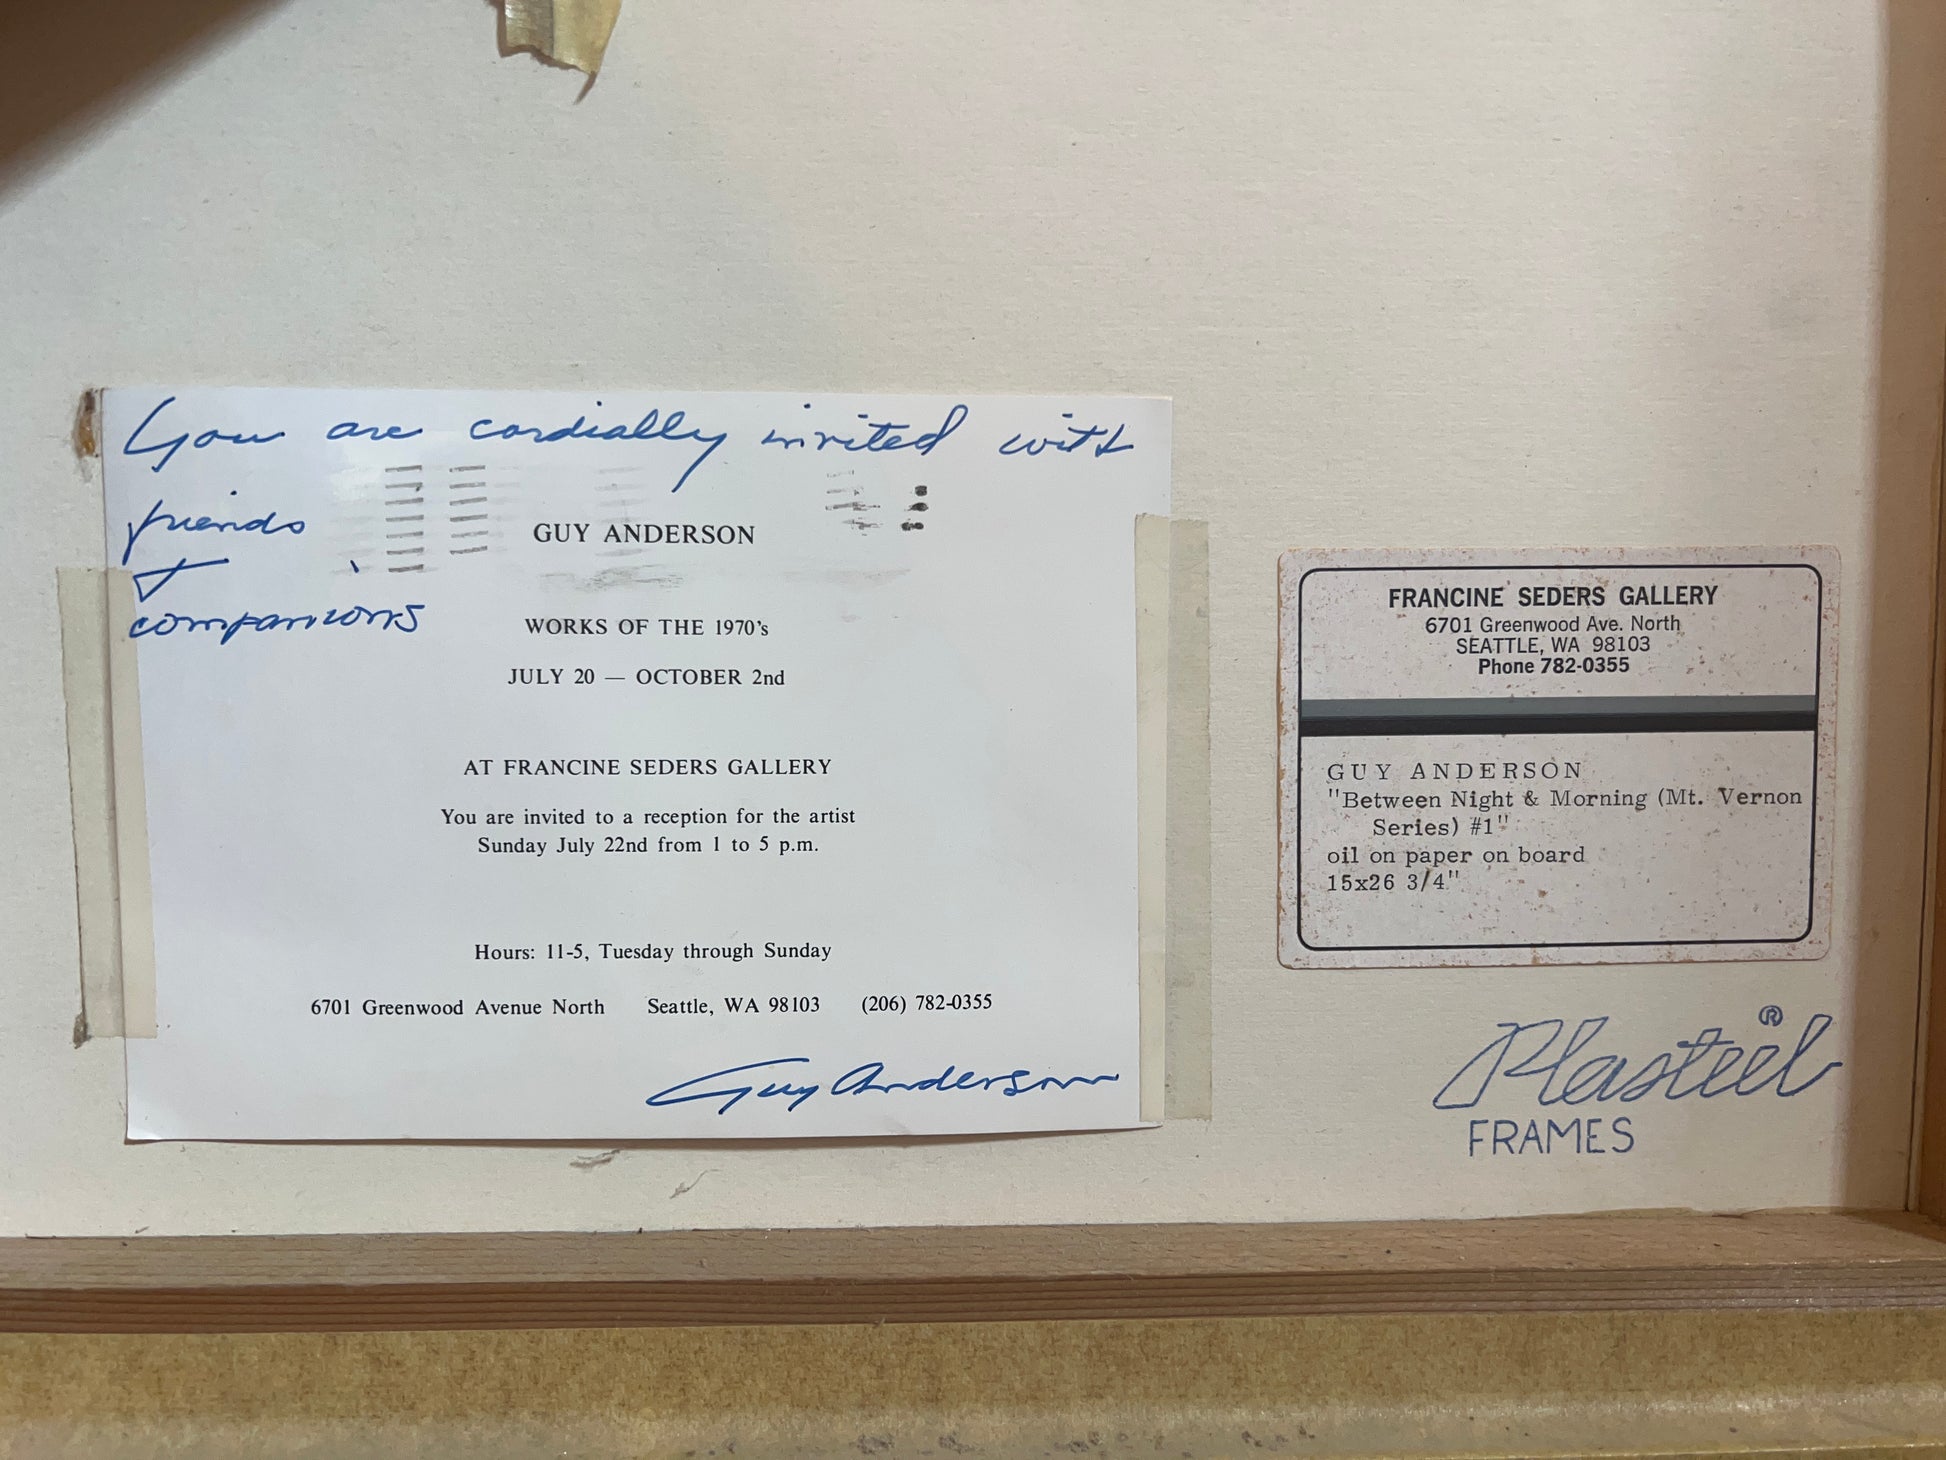 You are cordially invited with
friends
&
companions
GUY ANDERSON
WORKS OF THE 1970's
JULY 20 — OCTOBER 2nd
AT FRANCINE SEDERS GALLERY
You are invited to a reception for the artist
Sunday July 22nd from 1 to 5 p.m.
Hours: 11-5, Tuesday through Sunday
6701 Greenwood Avenue North Seattle, WA 98103 (206) 782-0355
Guy Anderson
FRANCINE SEDERS GALLERY
6701 Greenwood Ave. North
SEATTLE, WA 98103
Phone 782-0355
GUY ANDERSON
"Between Night & Morning (Mt. Vernon
Series) #1"
oil on paper on board
15x26 3/4"
Plasteel ®
FRAMES